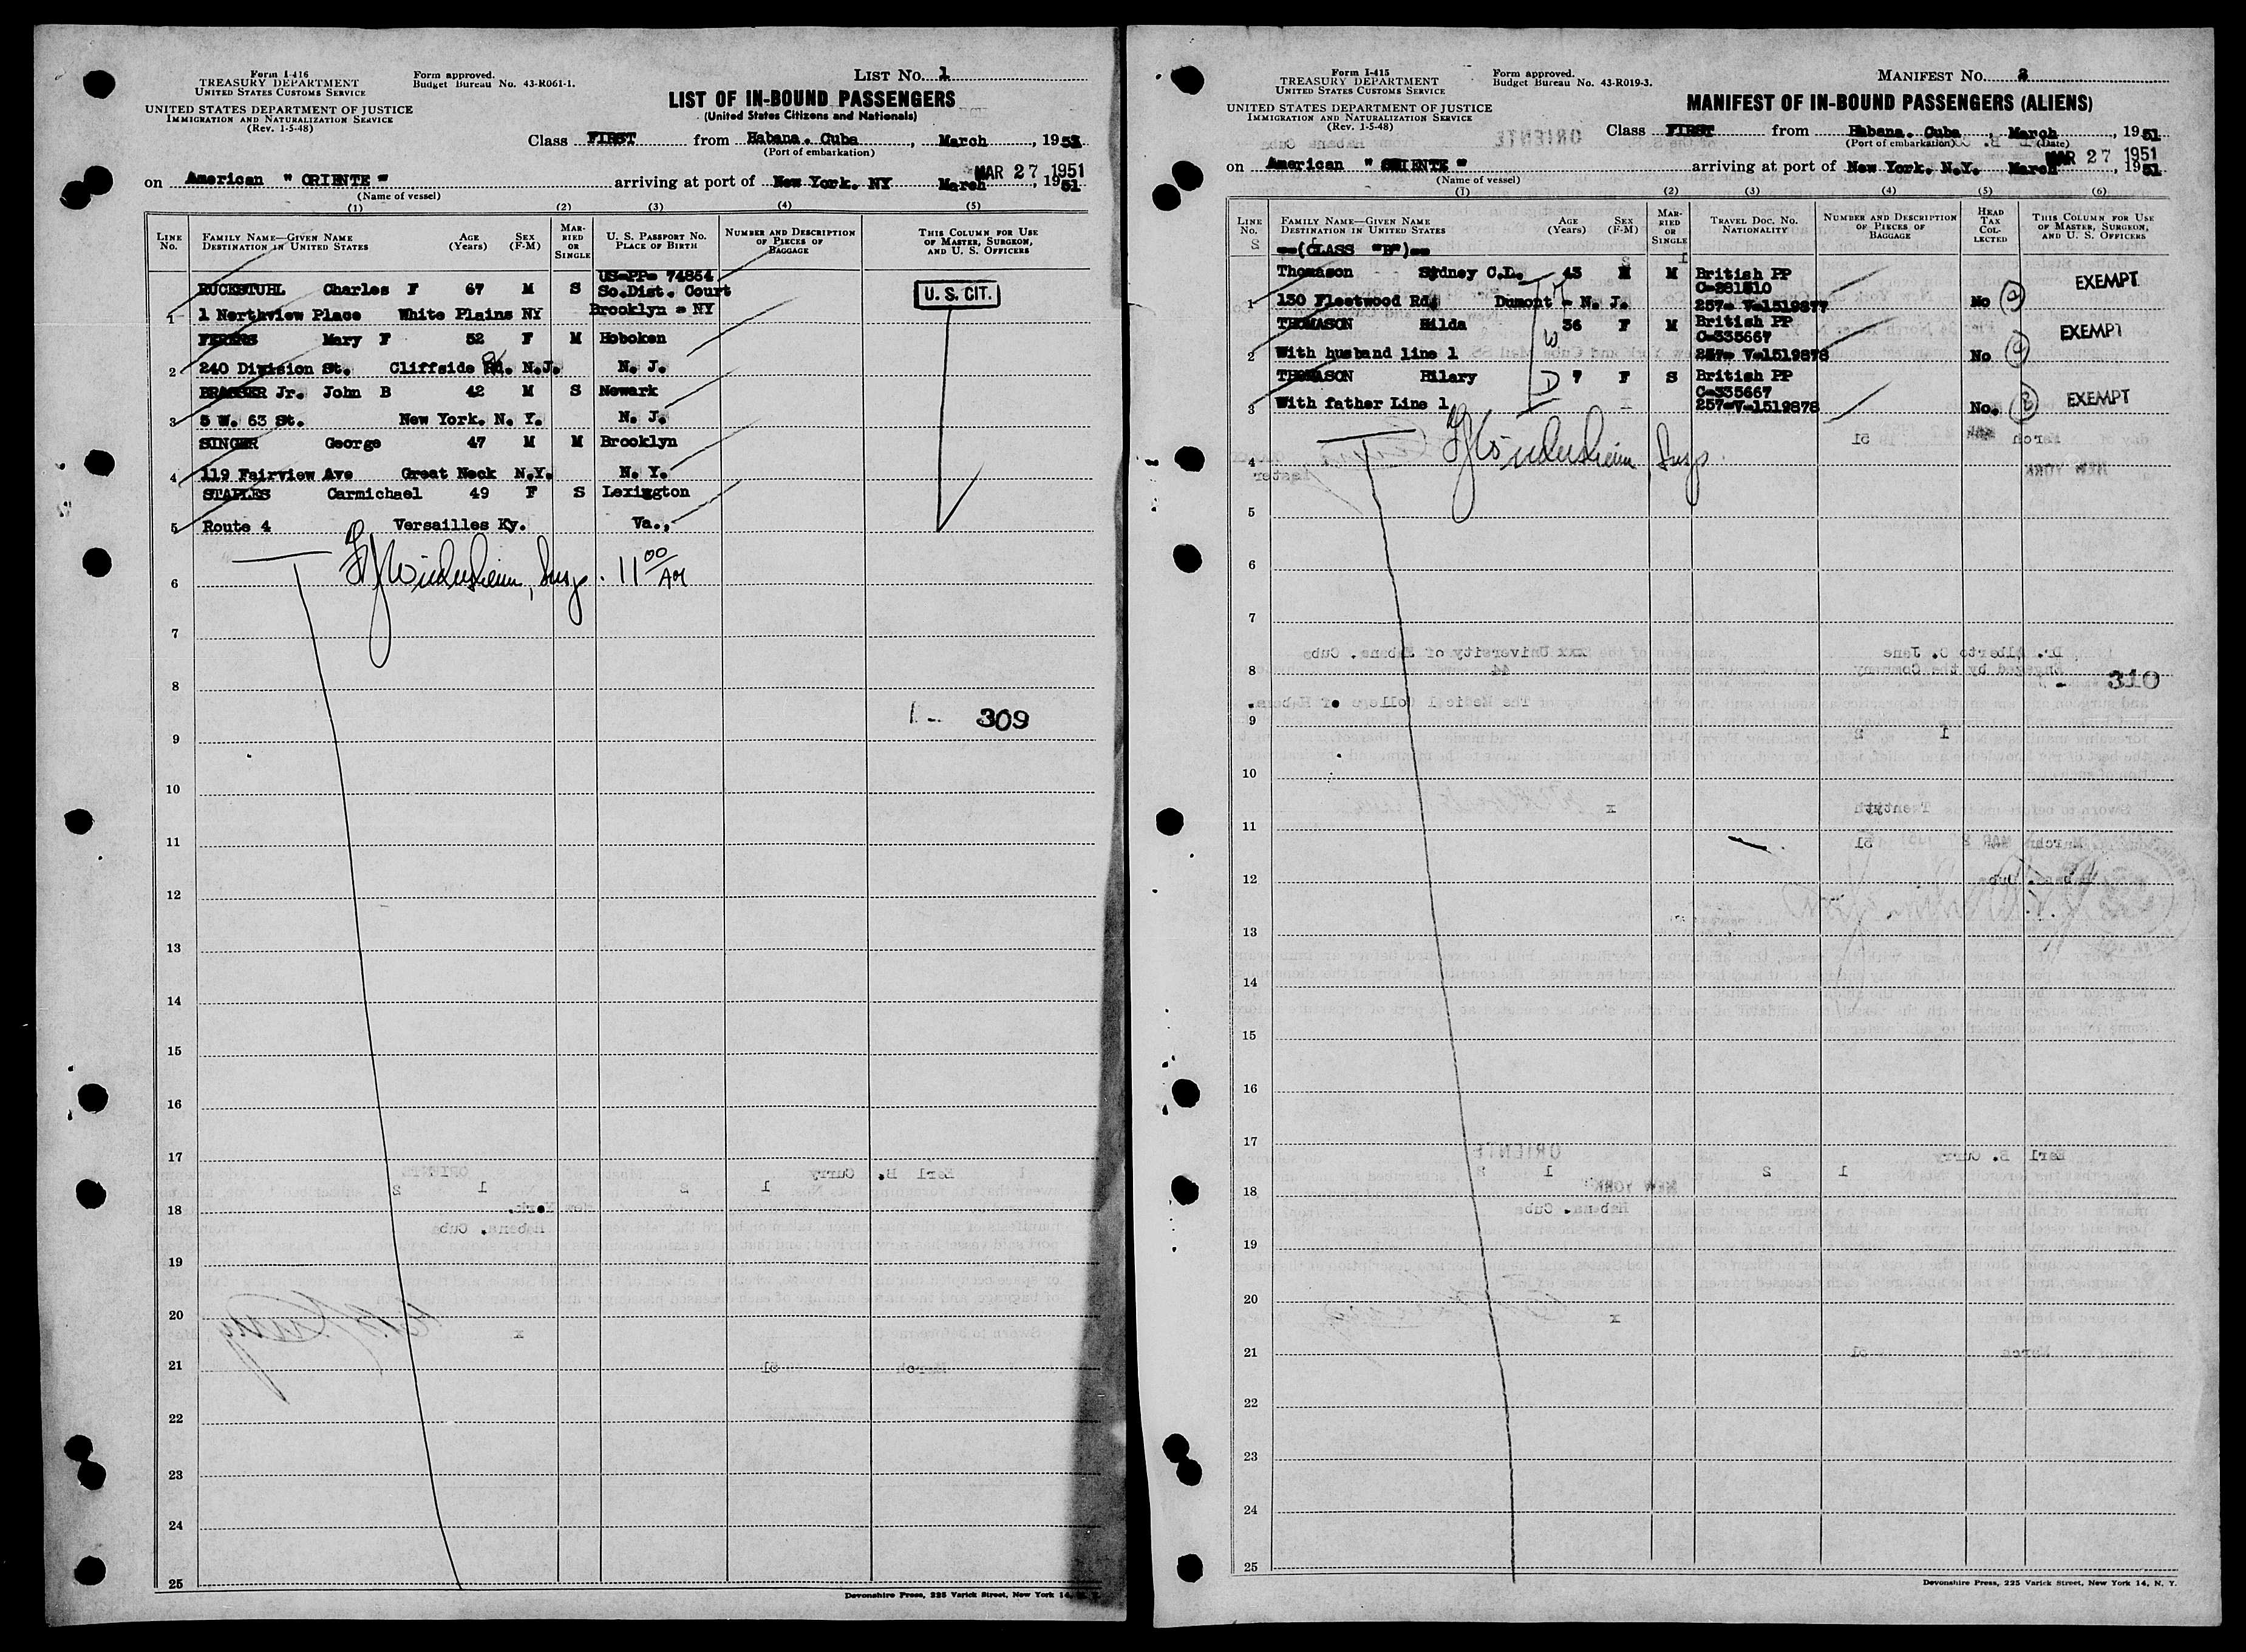 Form I-416
TREASURY DEPARTMENT
UNITED STATES CUSTOMS SERVICE
UNITED STATES DEPARTMENT OF JUSTICE
IMMIGRATION AND NATURALIZATION SERVICE
(Rev. 1-5-48)
Form approved.
Budget Bureau No. 43-R061-1.
LIST NO. 1
LIST OF IN-BOUND PASSENGERS
(United States Citizens and Nationals)
Class FIRST from Habana. Cuba, March, 1951
(Port of embarkation)
MAR 27 1951
on American " ORIENTE " arriving at port of New York. NY March, 1951
(Name of vessel)
(1) (2) (3) (4) (5)
LINE NO.
FAMILY NAME—GIVEN NAME
DESTINATION IN UNITED STATES
AGE (Years)
SEX (F-M)
MARRIED OR SINGLE
U. S. PASSPORT NO.
PLACE OF BIRTH
NUMBER AND DESCRIPTION OF PIECES OF BAGGAGE
THIS COLUMN FOR USE OF MASTER, SURGEON, AND U. S. OFFICERS
US-PP- 74864
RUCKSTUHL Charles F 67 M S So.Dist. Court
U. S. CIT.
1 1 Northview Place White Plains NY Brooklyn - NY
Mary F 52 F M Hoboken
2 240 Division St. Cliffside N.J. N. J.
Jr. John B 42 M S Newark
3 5 W. 63 St. New York. N. Y. N. J.
SINGER George 47 M M Brooklyn
4 119 Fairview Ave Great Neck N.Y. N. Y.
STAPLES Carmichael 49 F S Lexington
5 Route 4 Versailles Ky. Va.,
6 Insp. 11 00/AM
7
8
1 - 309
9
10
11
12
13
14
15
16
17
18
19
20
21
22
23
24
25
Devonshire Press, 225 Varick Street, New York 14, N. Y.
Form I-415
TREASURY DEPARTMENT
UNITED STATES CUSTOMS SERVICE
UNITED STATES DEPARTMENT OF JUSTICE
IMMIGRATION AND NATURALIZATION SERVICE
(Rev. 1-5-48)
Form approved.
Budget Bureau No. 43-R019-3.
MANIFEST NO. 2
MANIFEST OF IN-BOUND PASSENGERS (ALIENS)
Class FIRST from Habana. Cuba, March, 1951
(Port of embarkation) (Date)
MAR 27 1951
on American " ORIENTE " arriving at port of New York. N.Y. March, 1951
(Name of vessel)
(1) (2) (3) (4) (5) (6)
LINE NO.
FAMILY NAME—GIVEN NAME
DESTINATION IN UNITED STATES
AGE (Years)
SEX (F-M)
MARRIED OR SINGLE
TRAVEL DOC. NO.
NATIONALITY
NUMBER AND DESCRIPTION OF PIECES OF BAGGAGE
HEAD TAX COLLECTED
THIS COLUMN FOR USE OF MASTER, SURGEON, AND U. S. OFFICERS
--(CLASS "B")--
Thomason Sydney C.D. 43 M M British PP
EXEMPT
1 130 Fleetwood Rd Dumont - N. J. 257- V-1519877 No
THOMASON Hilda 36 F M British PP
C-335667
EXEMPT
2 With husband line 1 W 257- V-1519878 No
THOMASON Hilary D 7 F S British PP
C-335667
EXEMPT
3 With father Line 1 257-V-1519878 No.
4 Insp
5
6
7
8
310
9
10
11
12
13
14
15
16
17
18
19
20
21
22
23
24
25
Devonshire Press, 225 Varick Street, New York 14, N. Y.